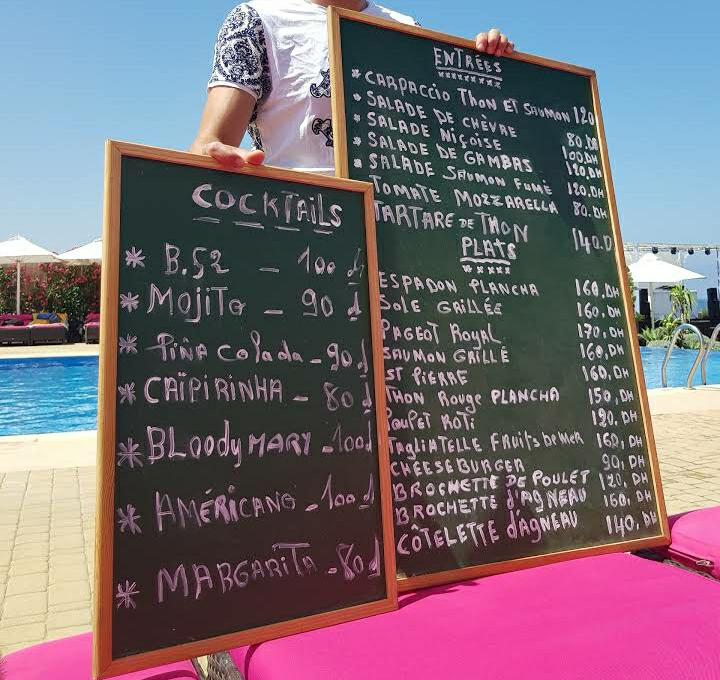 COCKTAILS
* B.52 - 100 d
* MOJITO - 90 d
* PIÑA COLADA - 90 d
* CAÏPIRINHA - 80 d
* BLOODY MARY - 100 d
* AMÉRICANO - 100 d
* MARGARITA - 80 d
ENTRÉES
* CARPACCIO THON ET SAUMON 120
* SALADE DE CHÈVRE 80.DH
* SALADE NIÇOISE 100.DH
* SALADE DE GAMBAS 120.DH
* SALADE SAUMON FUMÉ 120.DH
TOMATE MOZZARELLA 80.DH
TARTARE DE THON 140.D
PLATS
ESPADON PLANCHA 160.DH
SOLE GRILLÉE 160.DH
PAGEOT ROYAL 170.DH
SAUMON GRILLÉ 160.DH
ST PIERRE 160.DH
THON ROUGE PLANCHA 150.DH
ROTI 190.DH
TAGLIATELLE FRUITS DE MER 160.DH
CHEESEBURGER 90.DH
BROCHETTE DE POULET 120.DH
BROCHETTE d'AGNEAU 160.DH
CÔTELETTE d'AGNEAU 140.DH